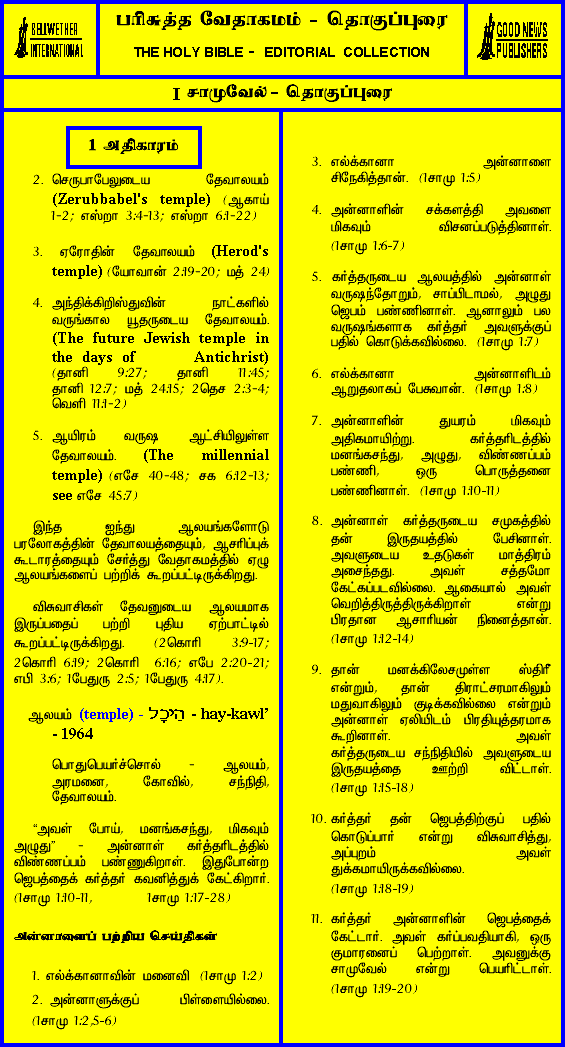 BELLWETHER
INTERNATIONAL
பரிசுத்த வேதாகமம் - தொகுப்புரை
THE HOLY BIBLE - EDITORIAL COLLECTION
GOOD NEWS
PUBLISHERS
I சாமுவேல் - தொகுப்புரை
1 அதிகாரம்
2. செருபாபேலுடைய தேவாலயம்
(Zerubbabel's temple) (ஆகாய்
1-2; எஸ்றா 3:4-13; எஸ்றா 6:1-22)
3. ஏரோதின் தேவாலயம் (Herod's
temple) (யோவான் 2:19-20; மத் 24)
4. அந்திக்கிறிஸ்துவின் நாட்களில்
வருங்கால யூதருடைய தேவாலயம்.
(The future Jewish temple in
the days of Antichrist)
(தானி 9:27; தானி 11:45;
தானி 12:7; மத் 24:15; 2தெச 2:3-4;
வெளி 11:1-2)
5. ஆயிரம் வருஷ ஆட்சியிலுள்ள
தேவாலயம். (The millennial
temple) (எசே 40-48; சக 6:12-13;
see எசே 45:7)
இந்த ஐந்து ஆலயங்களோடு
பரலோகத்தின் தேவாலயத்தையும், ஆசரிப்புக்
கூடாரத்தையும் சேர்த்து வேதாகமத்தில் ஏழு
ஆலயங்களைப் பற்றிக் கூறப்பட்டிருக்கிறது.
விசுவாசிகள் தேவனுடைய ஆலயமாக
இருப்பதைப் பற்றி புதிய ஏற்பாட்டில்
கூறப்பட்டிருக்கிறது. (2கொரி 3:9-17;
2கொரி 6:19; 2கொரி 6:16; எபே 2:20-21;
எபி 3:6; 1பேதுரு 2:5; 1பேதுரு 4:17).
ஆலயம் (temple) - הֵיכָל - hay-kawl’
- 1964
பொதுபெயர்ச்சொல் - ஆலயம்,
அரமனை, கோவில், சந்நிதி,
தேவாலயம்.
“அவள் போய், மனங்கசந்து, மிகவும்
அழுது” - அன்னாள் கர்த்தரிடத்தில்
விண்ணப்பம் பண்ணுகிறாள். இதுபோன்ற
ஜெபத்தைக் கர்த்தர் கவனித்துக் கேட்கிறார்.
(1சாமு 1:10-11, 1சாமு 1:17-28)
அன்னாளைப் பற்றிய செய்திகள்
1. எல்க்கானாவின் மனைவி (1சாமு 1:2)
2. அன்னாளுக்குப் பிள்ளையில்லை.
(1சாமு 1:2,5-6)
3. எல்க்கானா அன்னாளை
சிநேகித்தான். (1சாமு 1:5)
4. அன்னாளின் சக்களத்தி அவளை
மிகவும் விசனப்படுத்தினாள்.
(1சாமு 1:6-7)
5. கர்த்தருடைய ஆலயத்தில் அன்னாள்
வருஷந்தோறும், சாப்பிடாமல், அழுது
ஜெபம் பண்ணினாள். ஆனாலும் பல
வருஷங்களாக கர்த்தர் அவளுக்குப்
பதில் கொடுக்கவில்லை. (1சாமு 1:7)
6. எல்க்கானா அன்னாளிடம்
ஆறுதலாகப் பேசுவான். (1சாமு 1:8)
7. அன்னாளின் துயரம் மிகவும்
அதிகமாயிற்று. கர்த்தரிடத்தில்
மனங்கசந்து, அழுது, விண்ணப்பம்
பண்ணி, ஒரு பொருத்தனை
பண்ணினாள். (1சாமு 1:10-11)
8. அன்னாள் கர்த்தருடைய சமுகத்தில்
தன் இருதயத்தில் பேசினாள்.
அவளுடைய உதடுகள் மாத்திரம்
அசைந்தது. அவள் சத்தமோ
கேட்கப்படவில்லை. ஆகையால் அவள்
வெறித்திருத்திருக்கிறாள் என்று
பிரதான ஆசாரியன் நினைத்தான்.
(1சாமு 1:12-14)
9. தான் மனக்கிலேசமுள்ள ஸ்திரீ
என்றும், தான் திராட்சரமாகிலும்
மதுவாகிலும் குடிக்கவில்லை என்றும்
அன்னாள் ஏலியிடம் பிரதியுத்தரமாக
கூறினாள். அவள்
கர்த்தருடைய சந்நிதியில் அவளுடைய
இருதயத்தை ஊற்றி விட்டாள்.
(1சாமு 1:15-18)
10. கர்த்தர் தன் ஜெபத்திற்குப் பதில்
கொடுப்பார் என்று விசுவாசித்து,
அப்புறம் அவள்
துக்கமாயிருக்கவில்லை.
(1சாமு 1:18-19)
11. கர்த்தர் அன்னாளின் ஜெபத்தைக்
கேட்டார். அவள் கர்ப்பவதியாகி, ஒரு
குமாரனைப் பெற்றாள். அவனுக்கு
சாமுவேல் என்று பெயரிட்டாள்.
(1சாமு 1:19-20)